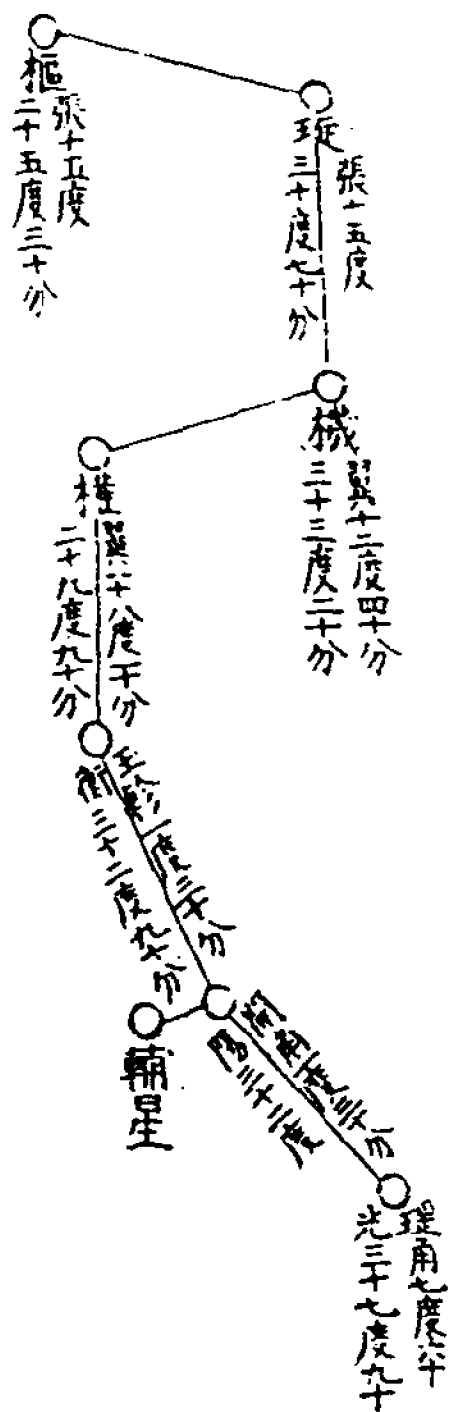 樞
張十五度
二十五度三十分
琁
張十五度
三十度七十分
機
翼十二度四十分
三十三度二十分
權
翼十八度 分
二十九度九十分
玉 一度三十分
衡三十二度九十分
輔星
開角 度三十分
陽三十二度
瑤角七度六十
光三十七度九十